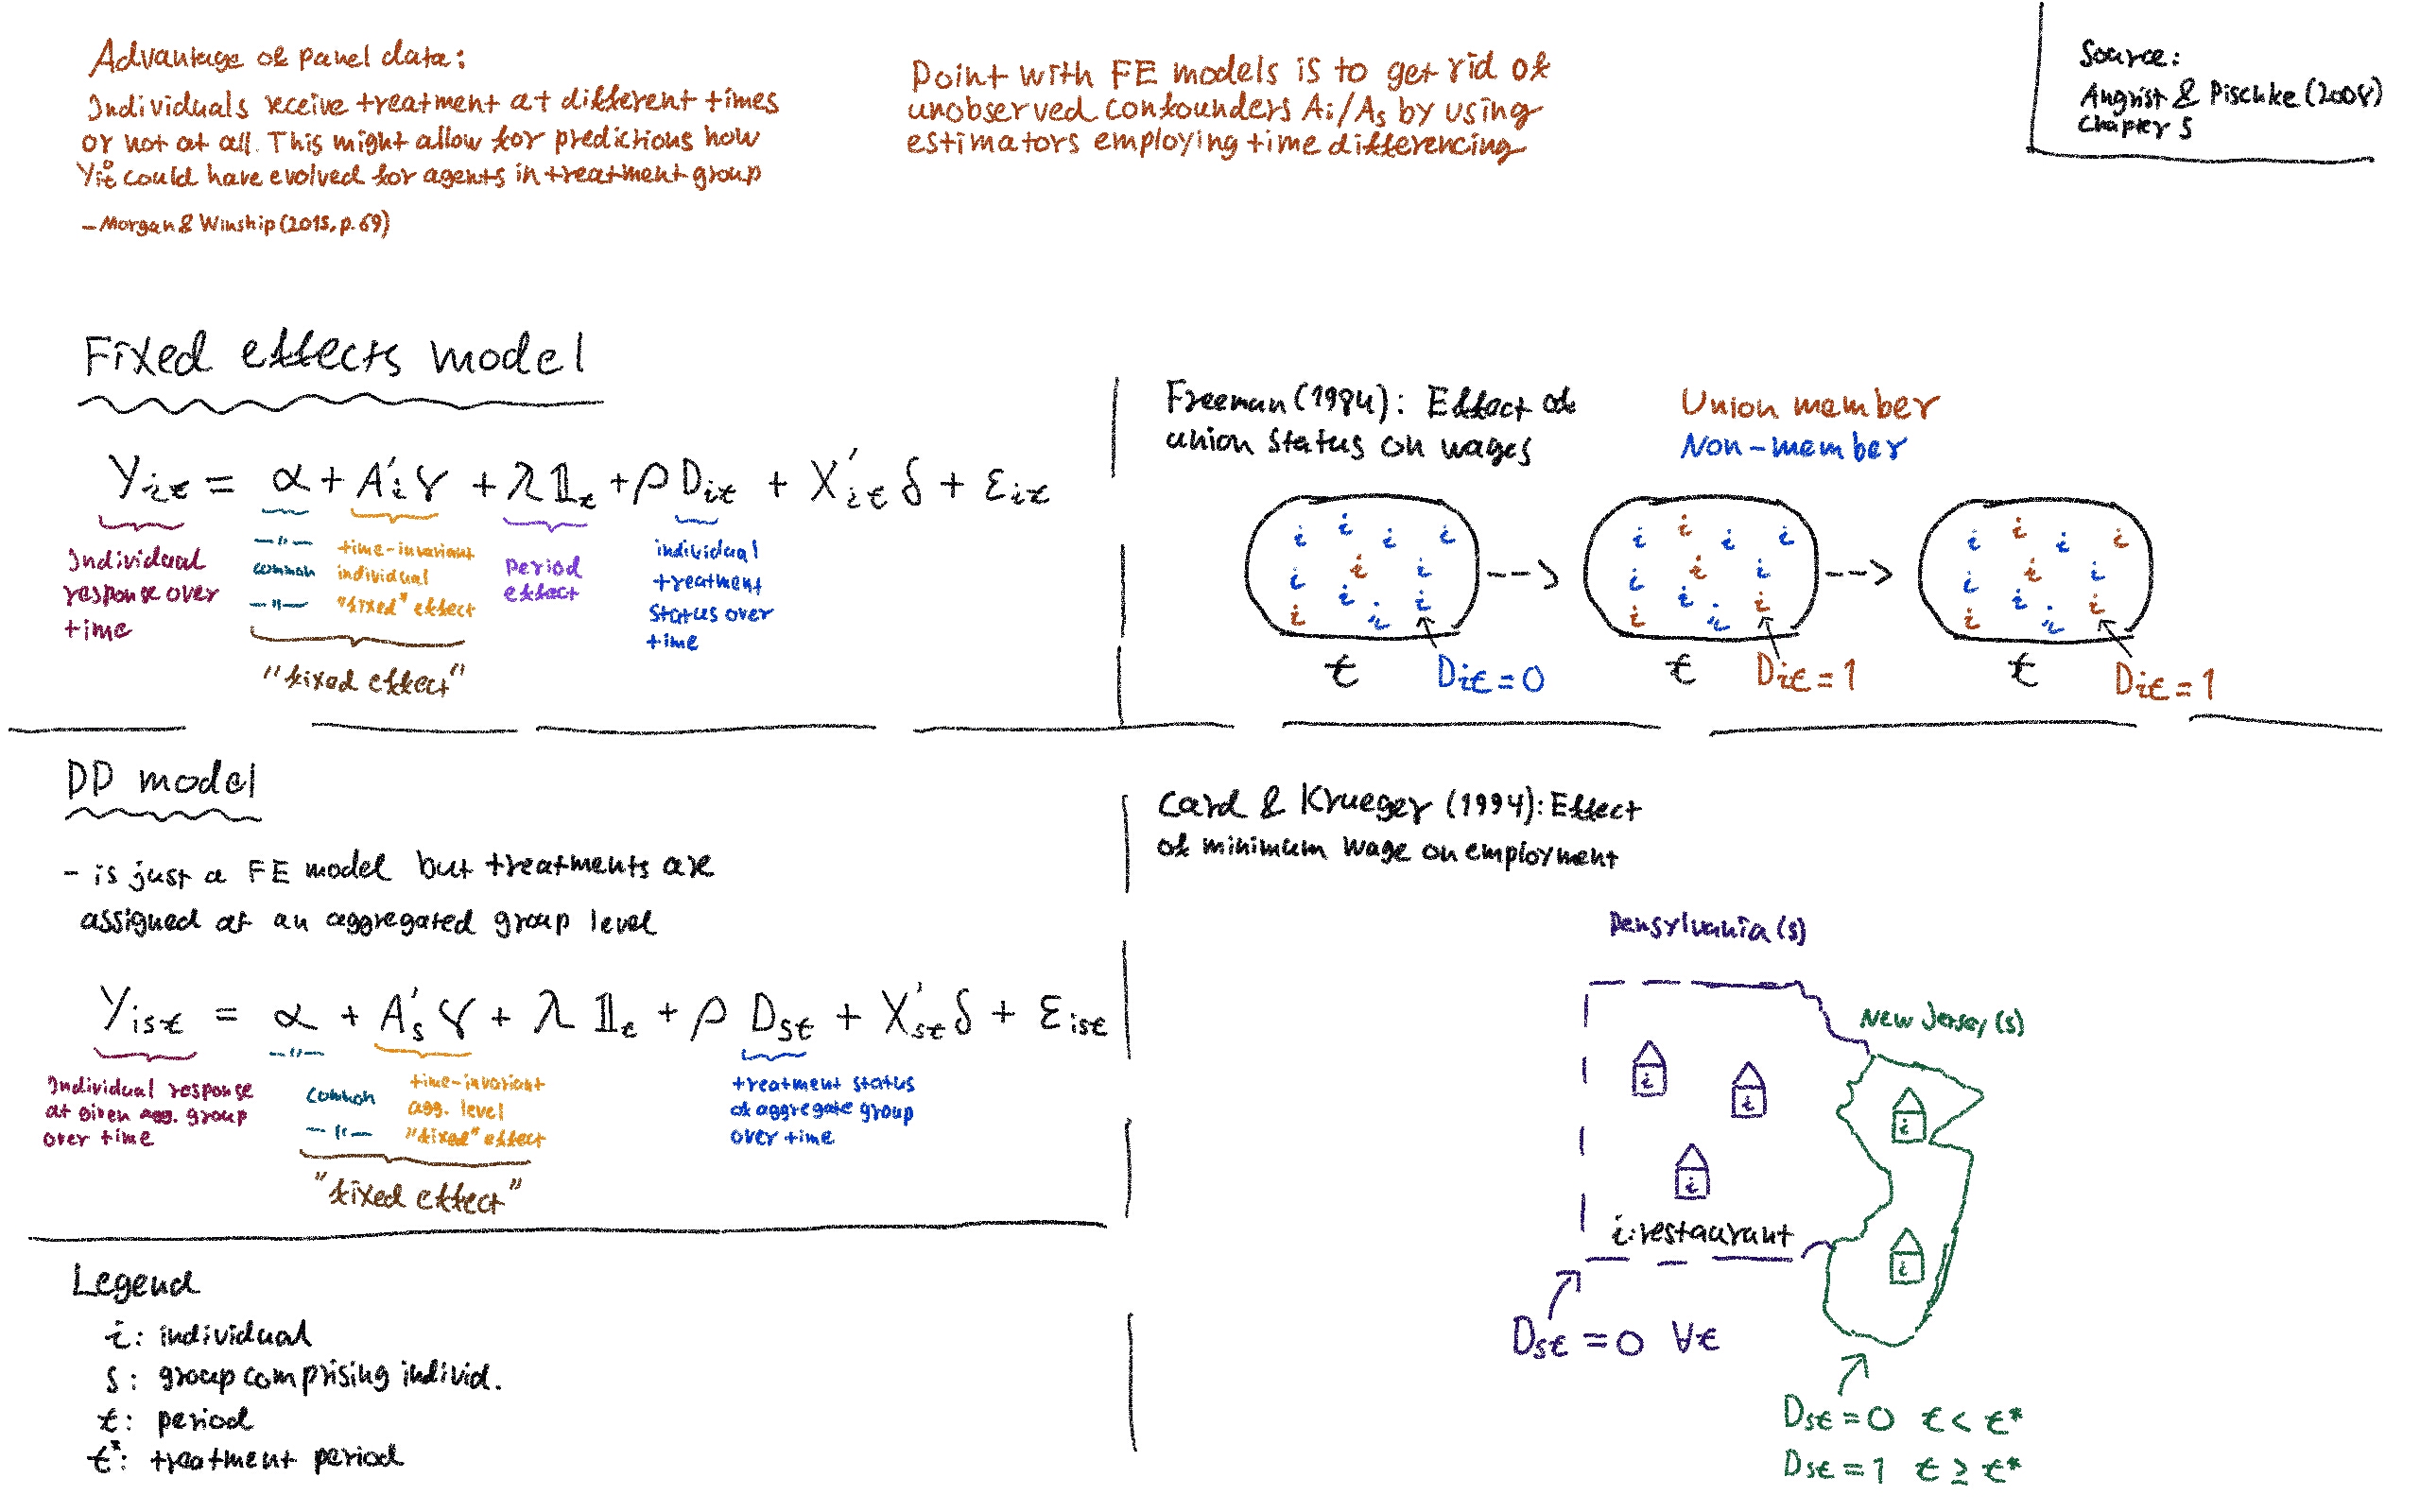 Advantage of panel data:
Individuals receive treatment at different times
or not at all. This might allow for predictions how
Y⁰it could have evolved for agents in treatment group
– Morgan & Winship (2015, p. 69)
Point with FE models is to get rid of
unobserved confounders Ai/As by using
estimators employing time differencing
Source:
Angrist & Pischke (2008)
Chapter 5
Fixed effects model
Yit = α + A'i γ + λ 𝟙t + ρ Dit + X'it δ + εit
Individual
response over
time
–"–
common
–"–
time-invariant
individual
"fixed" effect
"fixed effect"
period
effect
individual
treatment
status over
time
Freeman (1984): Effect of
union status on wages
Union member
Non-member
i i i i i i i i i i i i
t
Dit = 0
i i i i i i i i i i i i
t
Dit = 1
i i i i i i i i i i i i
t
Dit = 1
DD model
- is just a FE model but treatments are
assigned at an aggregated group level
Yist = α + A's γ + λ 𝟙t + ρ Dst + X'st δ + εist
Individual response
at given agg. group
over time
–"–
common
–"–
time-invariant
agg. level
"fixed" effect
"fixed effect"
treatment status
of aggregate group
over time
Card & Krueger (1994): Effect
of minimum wage on employment
Pensylvania (s)
New Jersey (s)
i
i
i
i
i
i: restaurant
Dst = 0 ∀t
Dst = 0 t < t*
Dst = 1 t ≥ t*
Legend
i: individual
s: group comprising individ.
t: period
t*: treatment period